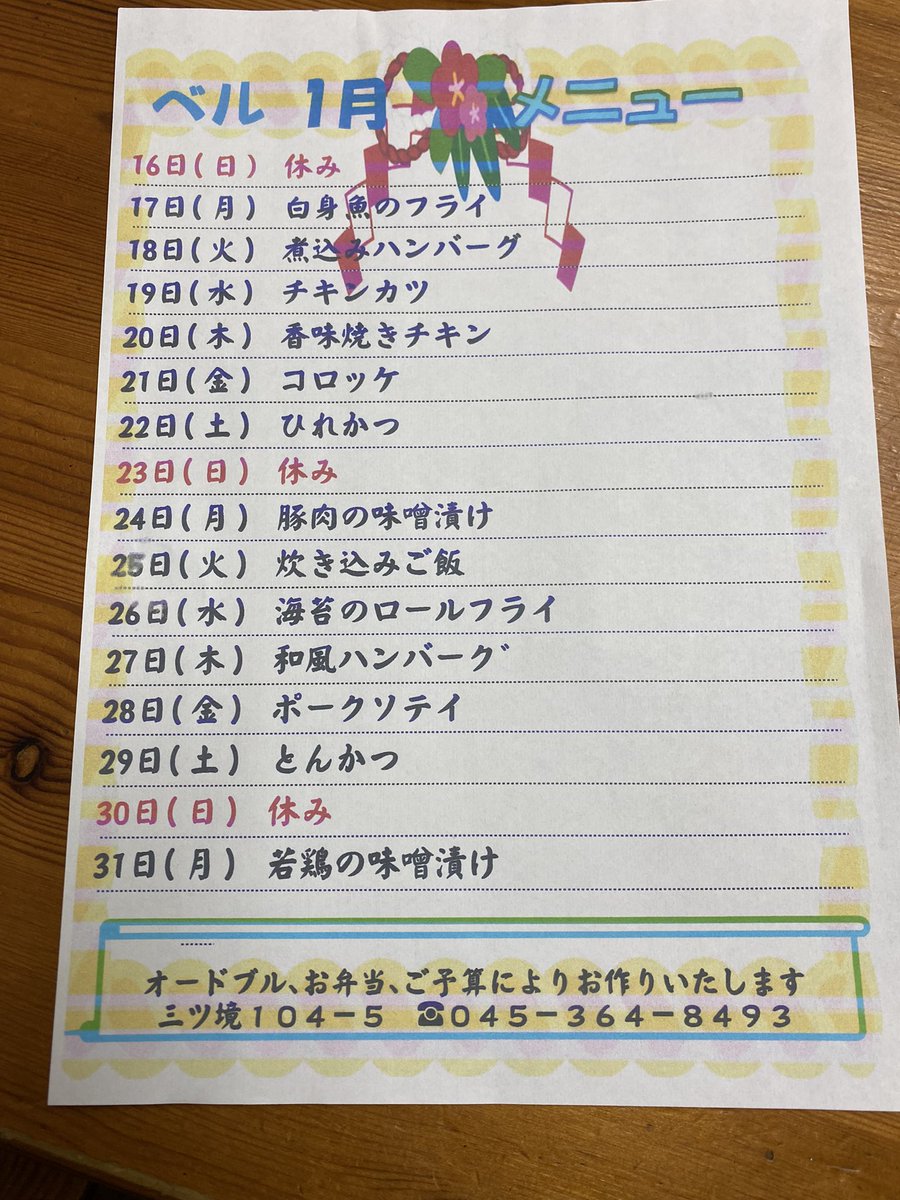 ベル 1月 メニュー
16日(日) 休み
17日(月) 白身魚のフライ
18日(火) 煮込みハンバーグ
19日(水) チキンカツ
20日(木) 香味焼きチキン
21日(金) コロッケ
22日(土) ひれかつ
23日(日) 休み
24日(月) 豚肉の味噌漬け
25日(火) 炊き込みご飯
26日(水) 海苔のロールフライ
27日(木) 和風ハンバーグ
28日(金) ポークソテイ
29日(土) とんかつ
30日(日) 休み
31日(月) 若鶏の味噌漬け
オードブル、お弁当、ご予算によりお作りいたします
三ツ境104-5 ☎045-364-8493